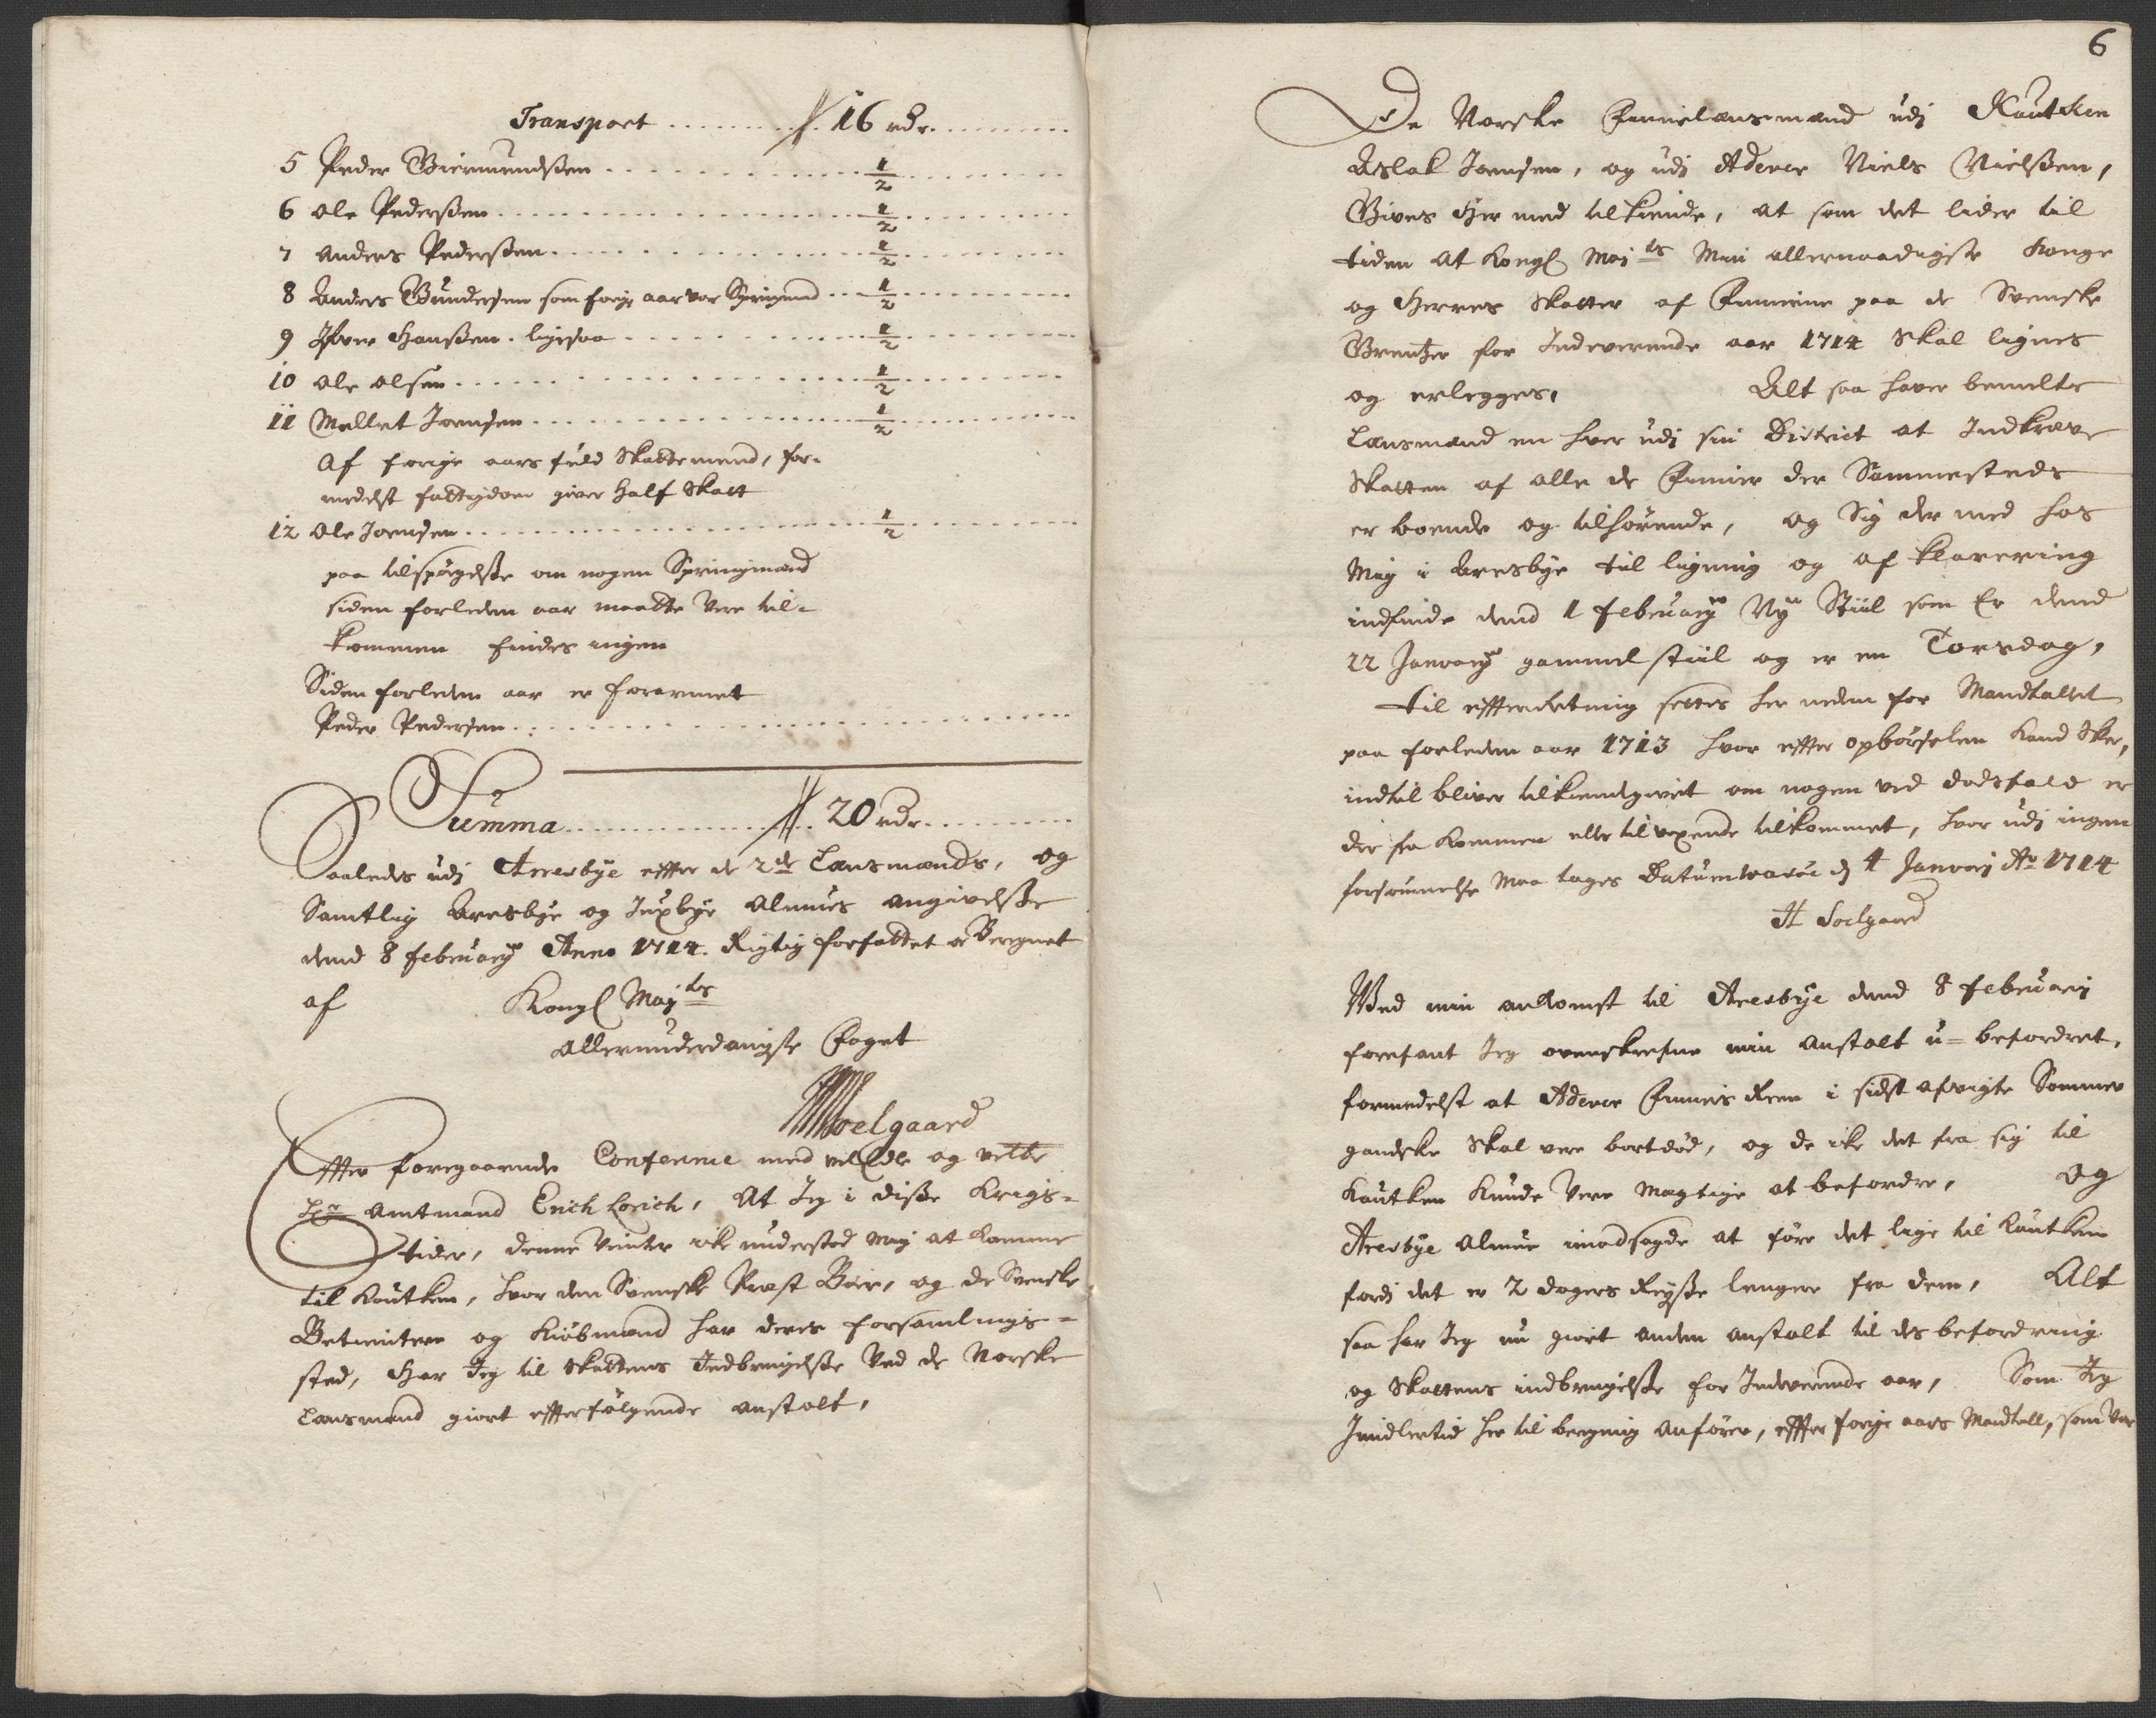 Transport ........ 16 rdr. ........
5 Peder Giermundßen ........ 1/2 ........
6 Ole Pederßen ........ 1/2 ........
7 Anders Pederßen ........ 1/2 ........
8 Anders Gundersen som forige aar var Springmand ... 1/2 ........
9 Ifver Hanßen. ligesaa ........ 1/2 ........
10 Ole Olsen ........ 1/2 ........
11 Mellet Joensen ........ 1/2 ........
Af forige aars fuld Skattemend, for-
medelst fattigdom giver Half Skatt
12 Ole Joensen ........ 1/2 ........
paa tilspørgelße om nogen Springmand
siden forleden aar maatte Vere til-
kommen findes ingen
Siden forleden aar er forarmet
Peder Pedersen ........
Summa ........ 20 rdr. ........
Saaledes udj Arresbye effter de 2de Lansmænds, og
Samtlig Aresbye og Juxbye Almues angivelße
dend 8 februarij Anno 1714. Rigtig forfattet og Beregnet
af Kongl Maytz
Allerunderdanigste Foget
Soelgaard
Effter foregaaende Conference med velEdle og
Hr Amtmand Erich Lorich, At Jeg i diße Krigs-
tider, denne Vinter icke understod mig at komme
til Koutken, hvor den Svenske Præst Boer, og de Svenske
Betienter og Kiøbmend har deres forsamlings-
sted, Har Jeg til Skattens Indbringelße Ved de Norske
Lansmend giort effterfølgende anstalt,
6
De Norske Finnelansmænd udj Koutken
Aslak Joensen, og udj Adevee Niels Nielßen,
Gives Her med tilkiende, at som det lider til
tiden at Kongl Maytz Min allernaadigste Konge
og Herres Skatter af Finnerne paa de Svenske
Grentzer for Indeverende aar 1714 Skal lignes
og erlegges, Alt saa haver bemelte
Lansmænd en hver udj sin District at Indkræve
Skatten af alle de Finner der Sammesteds
er boende og tilhørende, og Sig der med hos
Mig i Aresbye til ligning og af klarering
indfinde dend 1 februarij Ny Stiil som Er dend
22 Januarij gammel stiil og er en Torsdag,
til effterretning settes her neden for Mandtallet
paa forleden aar 1713 hvor effter opbørselen kand Skee,
indtil bliver tilkiendgivet om nogen ved dødsfald er
der fra kommen eller til voxende tilkommet, hvor udj ingen
forsømmelse Maa tages Datum Waræ dj 4 Januarij Ao 1714
H Soelgaard
Ved min ankomst til Aresbye dend 8 februarij
forefant Jeg ovenskrefne min Anstalt u-befordret,
formedelst at Adevee Finners Reen i sidst afvigte Sommer
gandske Skal vere bortdød, og de icke det fra sig til
Koutken kunde Vere Megtige at befordre, og
Aresbye Almue imodsagde at føre det lige til Koutken
fordj det er 2 dagers Reyße lengere fra dem, Alt
saa har Jeg nu giort anden anstalt til des befordring
og Skattens indbringelße for Indeverende aar, Som Jeg
Imidlertid her til beregning Anfører, effter forige aars Mandtall, som Var